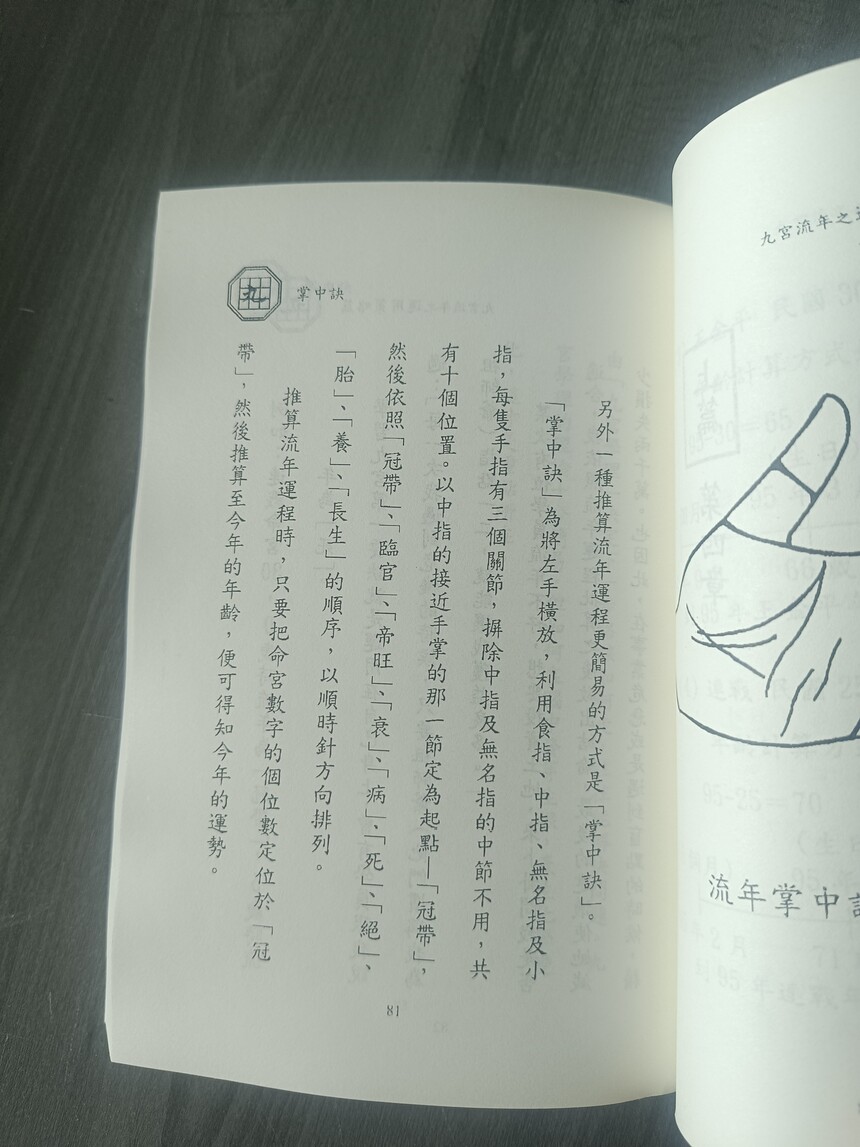 九
掌中訣
另外一種推算流年運程更簡易的方式是「掌中訣」。
「掌中訣」為將左手橫放，利用食指、中指、無名指及小
指，每隻手指有三個關節，摒除中指及無名指的中節不用，共
有十個位置。以中指的接近手掌的那一節定為起點—「冠帶」，
然後依照「冠帶」、「臨官」、「帝旺」、「衰」、「病」、「死」、「絕」、
「胎」、「養」、「長生」的順序，以順時針方向排列。
推算流年運程時，只要把命宮數字的個位數定位於「冠
帶」，然後推算至今年的年齡，便可得知今年的運勢。
81
九宮流年之
流年掌中